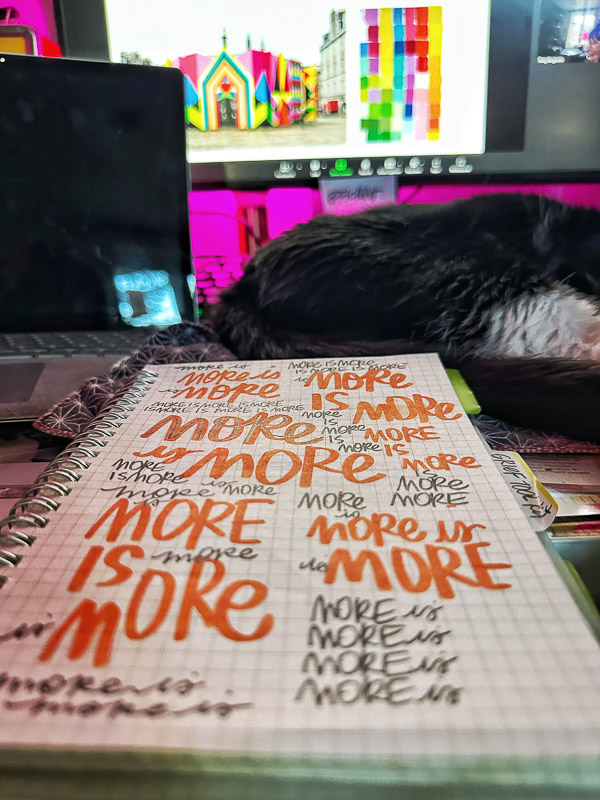 more is
more is
is more
MORE IS MORE IS MORE
IS MORE IS MORE IS MORE
more
is MORE
MORE
IS MORE
is more
more
is
MORE
IS more
MORE
is
more is
more is
MORE IS MORE
IS MORE IS MORE
is MORE
IS MORE
MORE
IS
MORE MORE
IS IS
more
IS
MORE
MORE
MORE
is
more is
is MORE
MORE is
MORE is
MORE is
MORE is